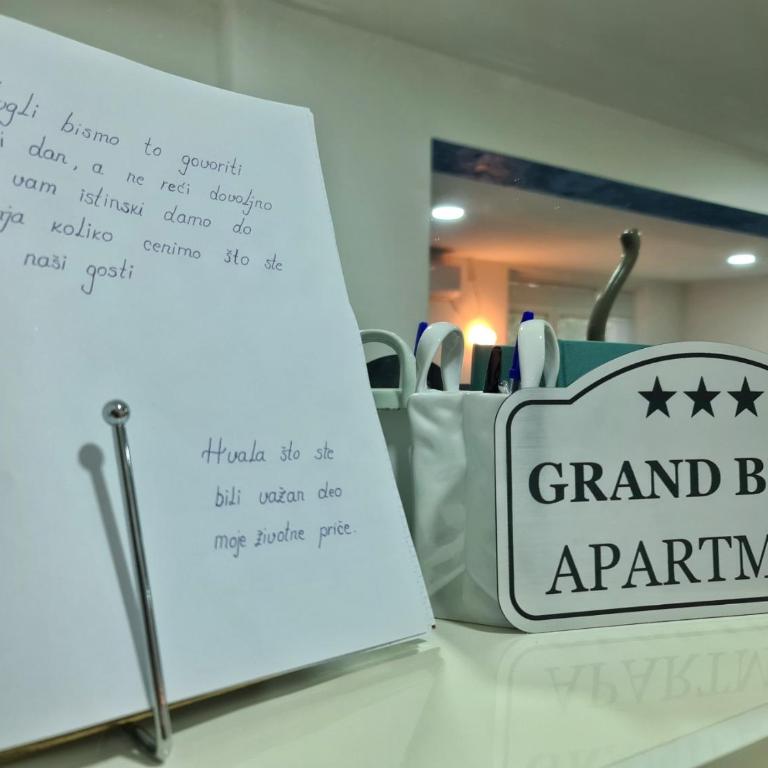 bismo to govoriti
i dan, a ne reći dovoljno
vam istinski damo do
koliko cenimo što ste
naši gosti
Hvala što ste
bili važan deo
moje životne priče.
★★★
GRAND B
APARTM